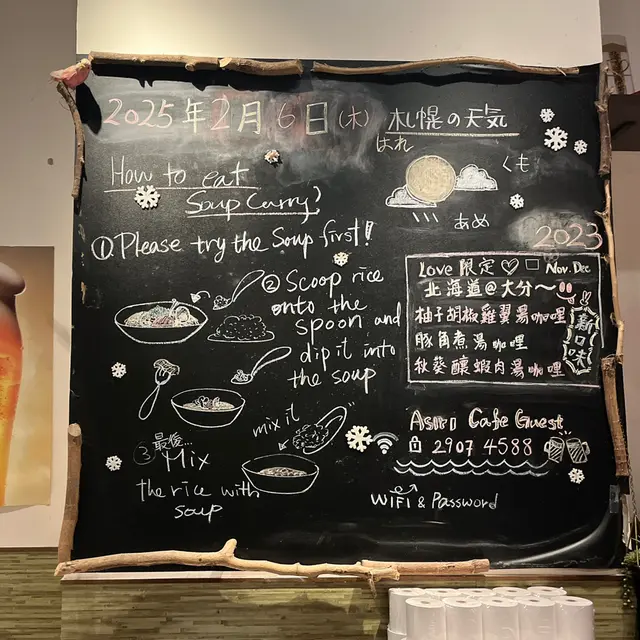 2025年2月6日(木)
札幌の天気
はれ
くもり
あめ
How to eat
Soup Curry?
① Please try the Soup first!
② Scoop rice
onto the
spoon and
dip it into
the soup
mix it
③ 最後...
Mix
the rice with
soup
2023
Love 限定 Nov. Dec
北海道@大分~
柚子胡椒雞翼湯咖哩
豚角煮湯咖哩
秋葵釀蝦肉湯咖哩
新口味
Asiri Cafe Guest
2907 4588
WiFi & Password